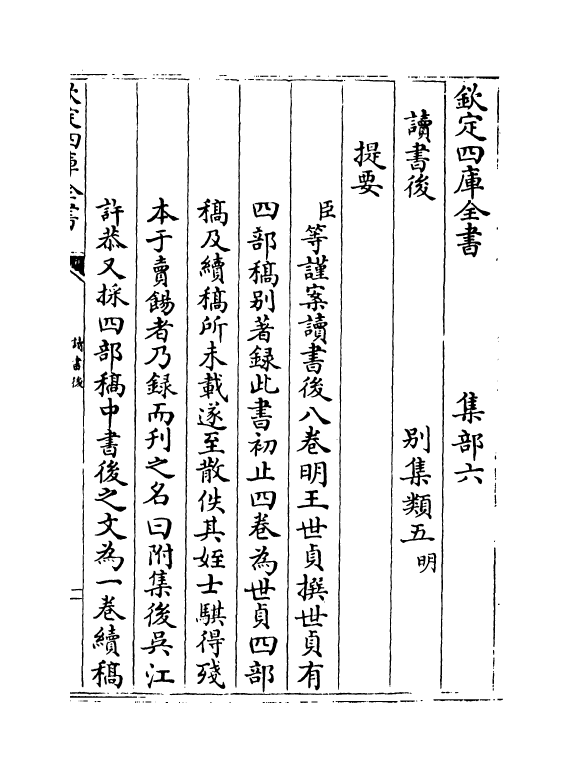 欽定四庫全書　集部六
讀書後　別集類五明
提要
臣等謹案讀書後八卷明王世貞撰世貞有
四部稿别著録此書初止四卷為世貞四部
稿及續稿所未載遂至散佚其姪士騏得殘
本于賣餳者乃録而刋之名曰附集後吳江
許恭又採四部稿中書後之文為一卷續稿
欽定四庫全書
讀書後
二